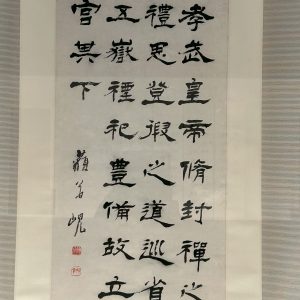 孝武皇帝脩封禪之
禮思登徦之道巡省
五嶽禋祀豊備故立
宮其下